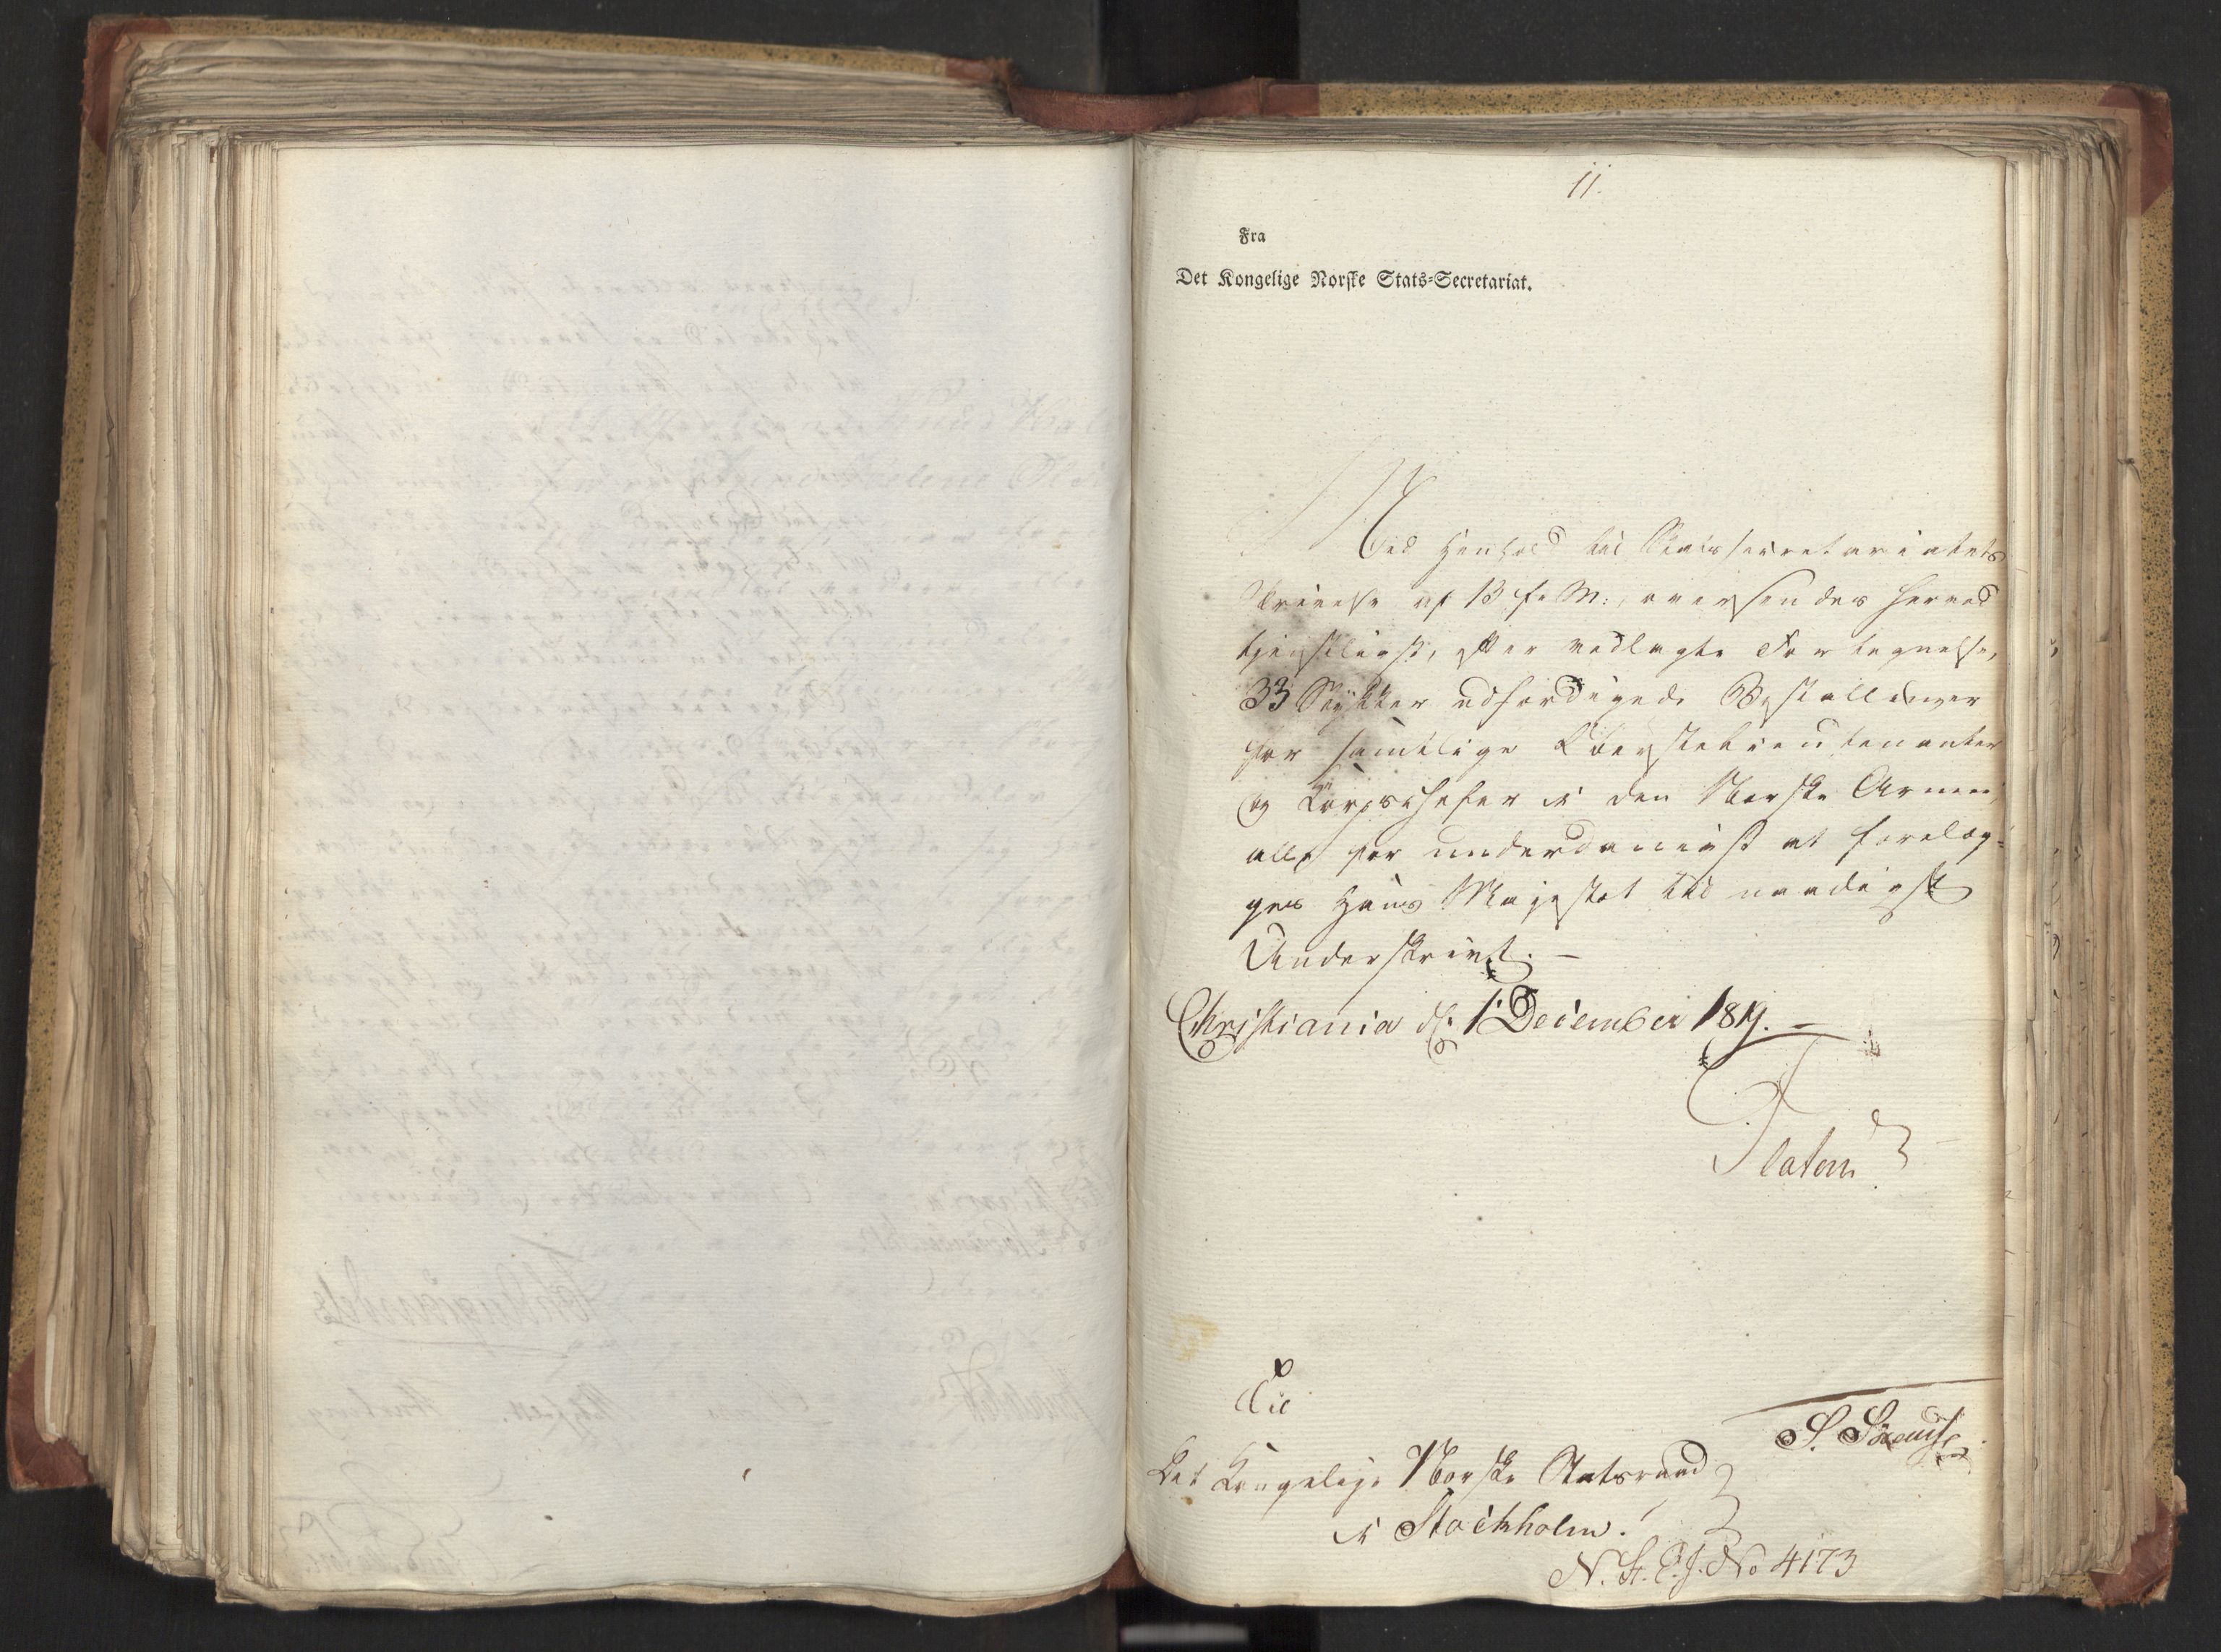 11.
Fra
Det Kongelige Norske Stats-Secretariat.
Med Henhold til Statssecretariatets
Skrivelse af 13 f. M:, oversendes herved
tjenstligst, efter vedlagte Fortegnelse,
33 Stykker udfærdigede Bestallinger
for samtlige Oberstlieutenanter
og Corpschefer i den Norske Armee,
alle for underdanigst at forelæg-
ges Hans Majestæt til naadigst
Underskrivt. -
Christiania d: 1 December 1819. -
Platen
Til
S. Sörensse
Det Kongelige Norske Statsraad
i Stockholm.
N. St. E. J. No 4173